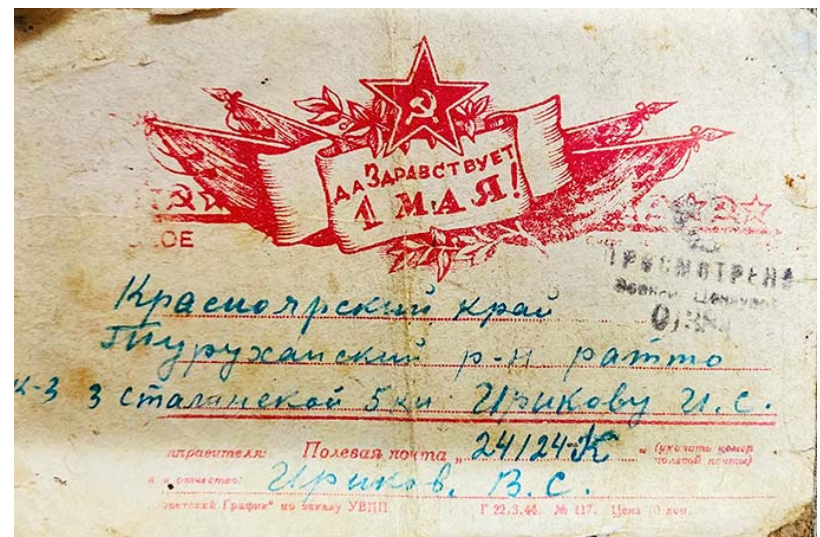 ДА ЗДРАВСТВУЕТ
1 МАЯ!
СКОЕ
ПРОСМОТРЕНО
Военной Цензурой
Красноярский край
Туруханский р-н ратто
к-з 3 сталинской 5ки Ирикову И. С.
правителя: Полевая почта „24124-К" (указать номер полевой почты)
и отчество: Ириков, В. С.
Советский График" по заказу УВПП. Г 22.3.45. № 117. Цена 10 коп.